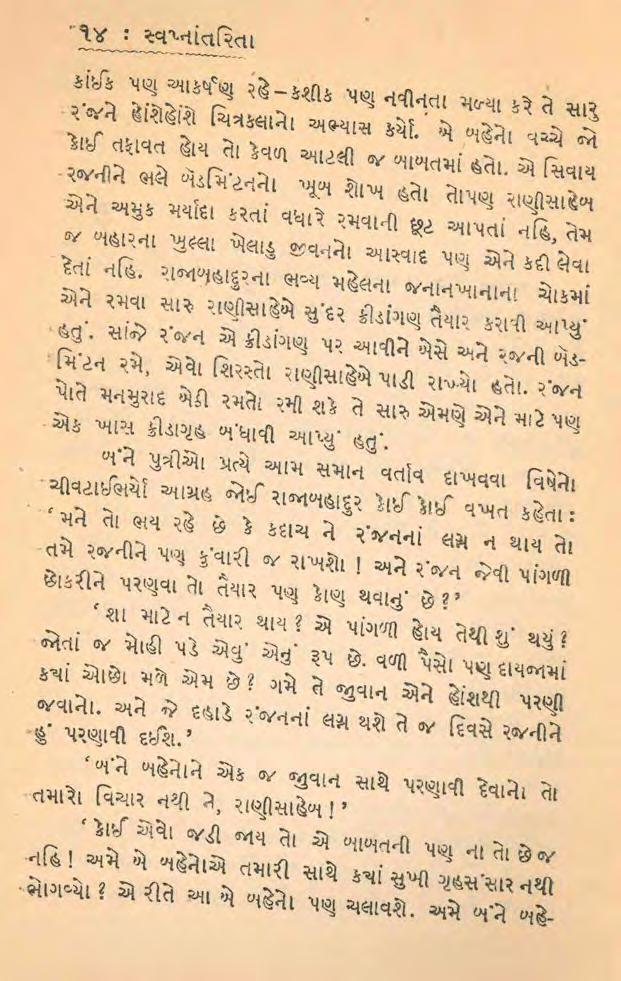 ૧૪ : સ્વપ્નાંતરિતા
કાંઈક પણ આકર્ષણ રહે – કશીક પણ નવીનતા મળ્યા કરે તે સારુ
રંજને હોંશેહોંશે ચિત્રકલાનો અભ્યાસ કર્યો. એ બહેનો વચ્ચે જો
કોઈ તફાવત હોય તો કેવળ આટલી જ બાબતમાં હતો. એ સિવાય
રજનીને ભલે બૅડમિંટનનો ખૂબ શોખ હતો તોપણ રાણીસાહેબ
એને અમુક મર્યાદા કરતાં વધારે રમવાની છૂટ આપતાં નહિ, તેમ
જ બહારના ખુલ્લા ખેલાડુ જીવનનો આસ્વાદ પણ એને કદી લેવા
દેતાં નહિ. રાજાબહાદુરના ભવ્ય મહેલના જનાનખાનાના ચોકમાં
એને રમવા સારુ રાણીસાહેબે સુંદર ક્રીડાંગણ તૈયાર કરાવી આપ્યું
હતું. સાંજે રંજન એ ક્રીડાંગણ પર આવીને બેસે અને રજની બૅડ-
મિંટન રમે, એવો શિરસ્તો રાણીસાહેબે પાડી રાખ્યો હતો. રંજન
પોતે મનમુરાદ બેઠી રમતો રમી શકે તે સારુ એમણે એને માટે પણ
એક ખાસ ક્રીડાગૃહ બંધાવી આપ્યું હતું.
બંને પુત્રીઓ પ્રત્યે આમ સમાન વર્તાવ દાખવવા વિષેનો
ચીવટાઈભર્યો આગ્રહ જોઈ રાજાબહાદુર કોઈ કોઈ વખત કહેતા :
‘મને તો ભય રહે છે કે કદાચ ને રંજનનાં લગ્ન ન થાય તો
તમે રજનીને પણ કુંવારી જ રાખશો ! અને રંજન જેવી પાંગળી
છોકરીને પરણવા તો તૈયાર પણ કોણ થવાનું છે?’
‘શા માટે ન તૈયાર થાય? એ પાંગળી હોય તેથી શું થયું?
જોતાં જ મોહી પડે એવું એનું રૂપ છે. વળી પૈસો પણ દાયજામાં
ક્યાં ઓછો મળે એમ છે? ગમે તે જુવાન એને હોંશથી પરણી
જવાનો. અને જે દહાડે રંજનનાં લગ્ન થશે તે જ દિવસે રજનીને
હું પરણાવી દઈશ.’
‘બંને બહેનોને એક જ જુવાન સાથે પરણાવી દેવાનો તો
તમારો વિચાર નથી ને, રાણીસાહેબ!’
‘કોઈ એવો જડી જાય તો એ બાબતની પણ ના તો છે જ
નહિ! અમે બે બહેનોએ તમારી સાથે ક્યાં સુખી ગૃહસંસાર નથી
ભોગવ્યો? એ રીતે આ બે બહેનો પણ ચલાવશે. અમે બંને બહે-